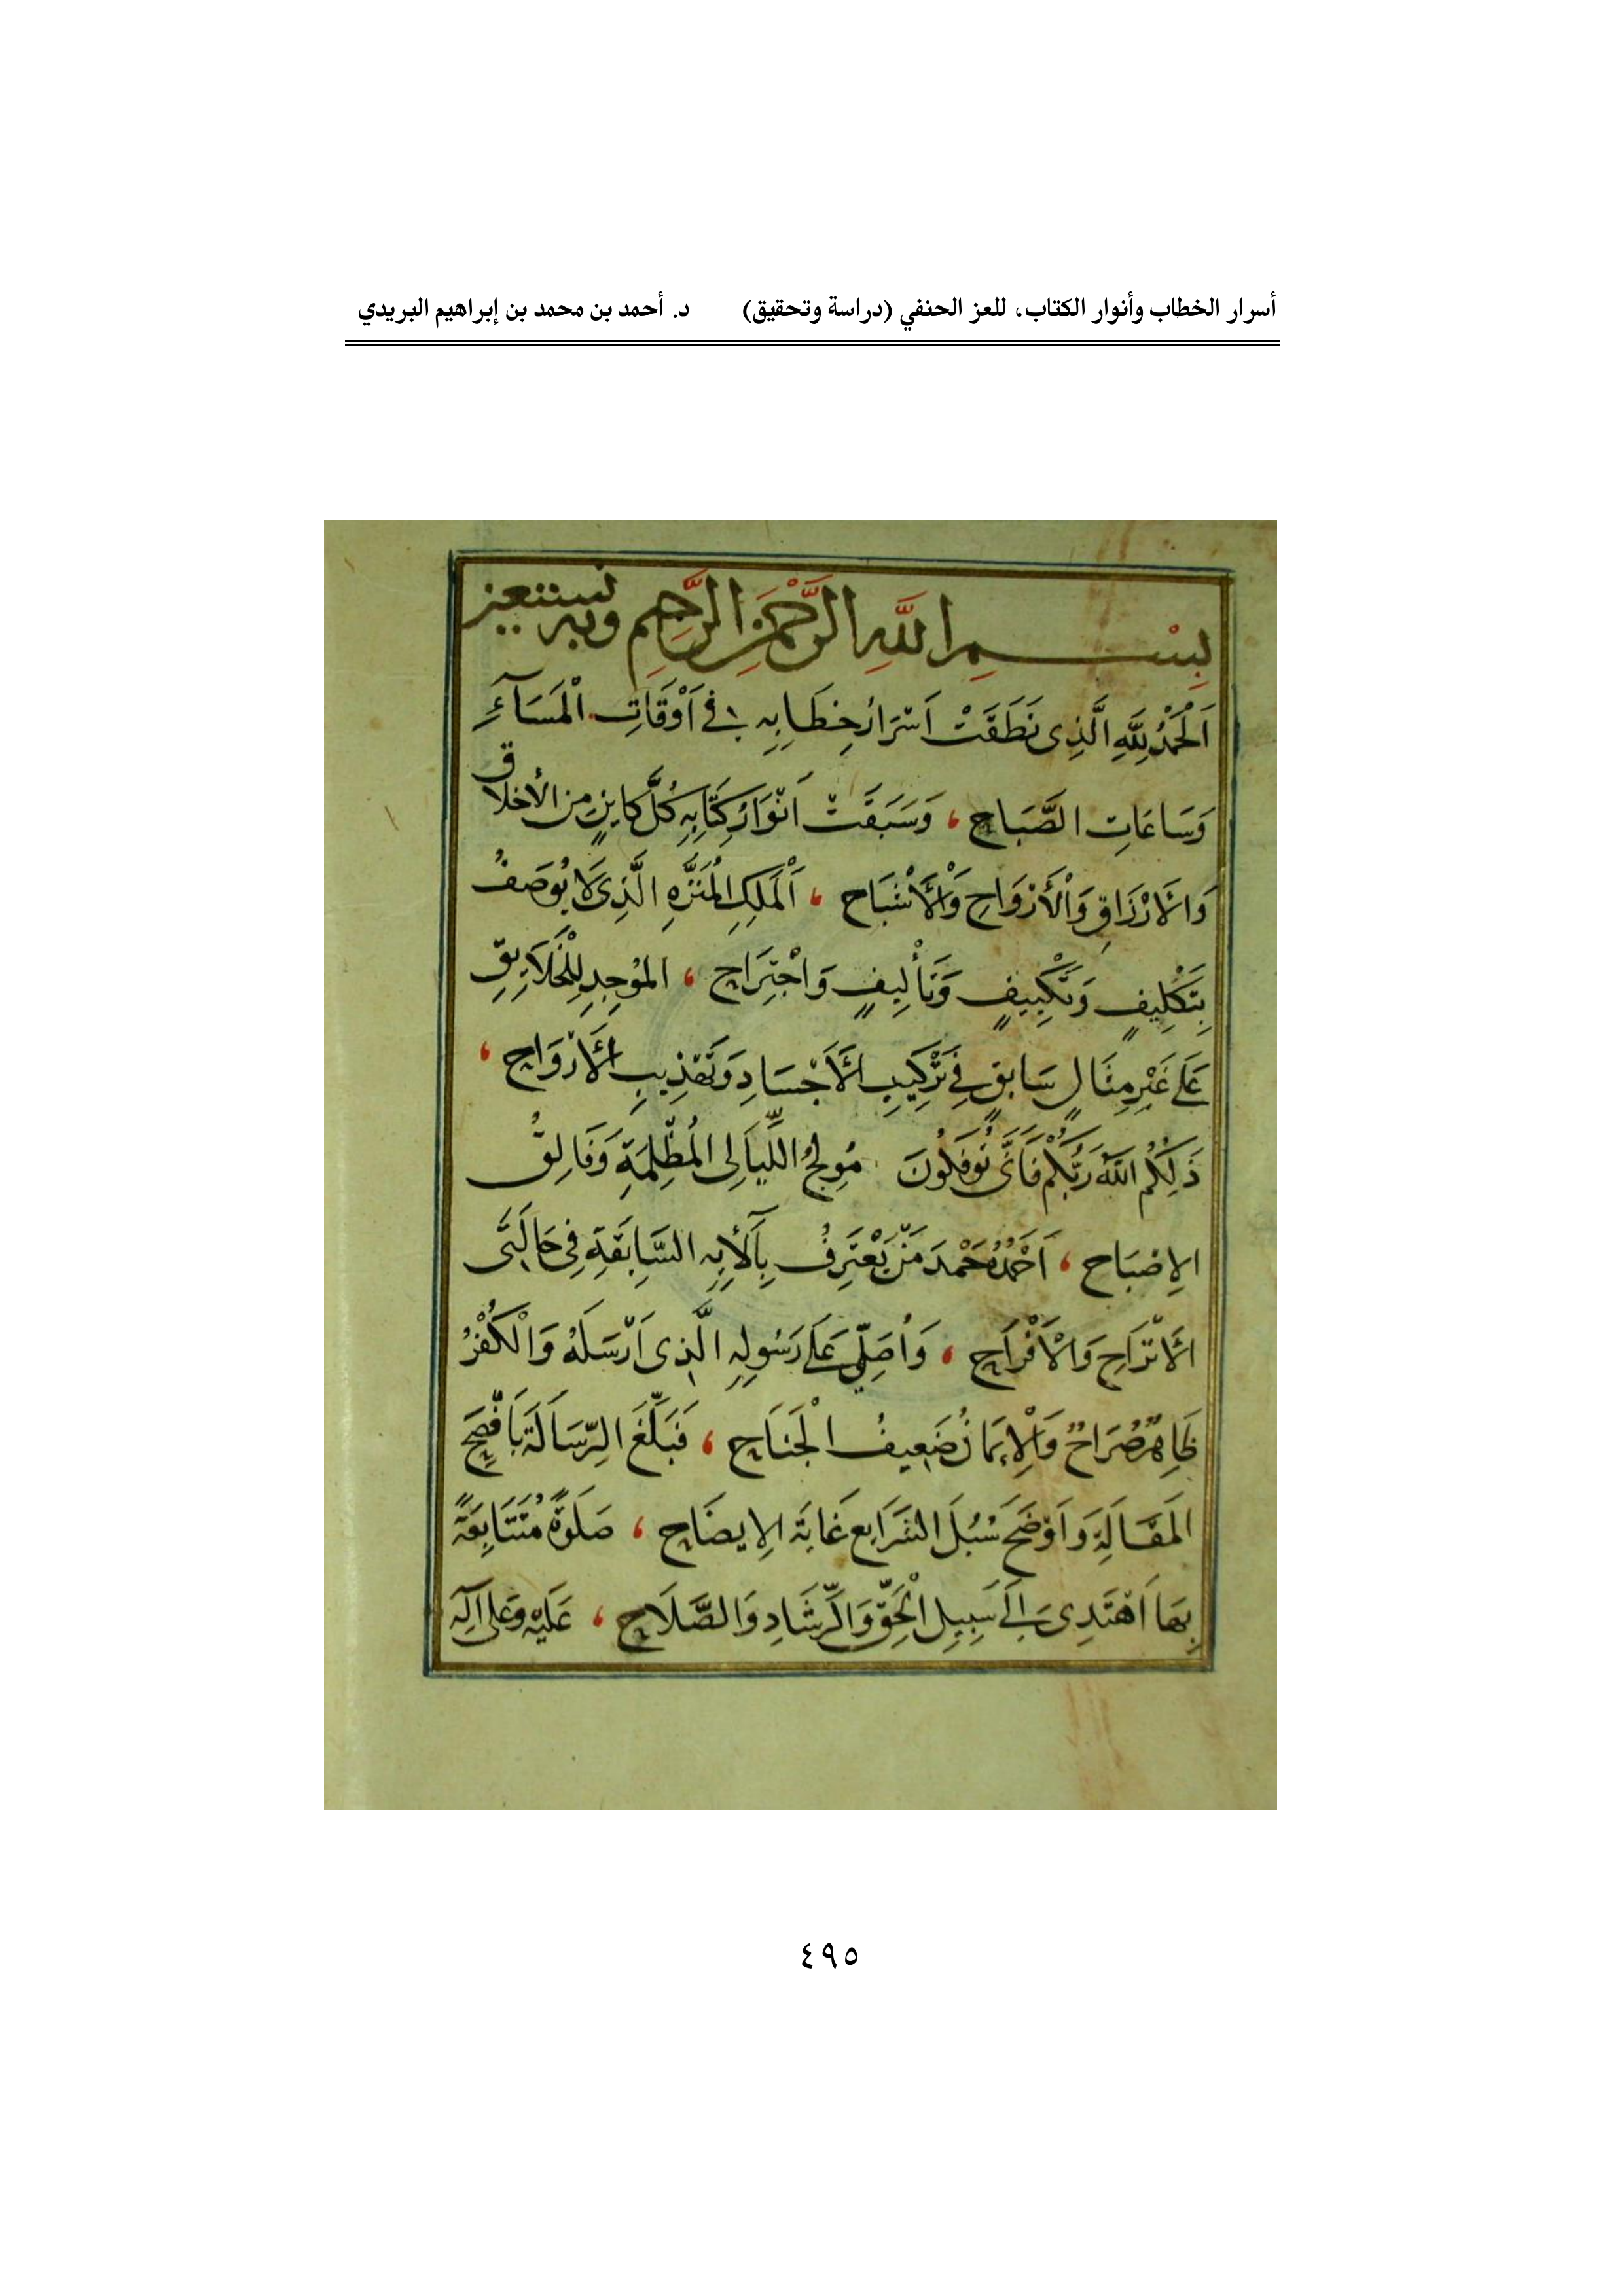 أسرار الخطاب وأنوار الكتاب، للعز الحنفي (دراسة وتحقيق) د. أحمد بن محمد بن إبراهيم البريدي
بِسْمِ اللَّهِ الرَّحْمَنِ الرَّحِيمِ وبه نستعين
اَلْحَمْدُ لِلَّهِ الَّذِى نَطَقَتْ اَسْرَارُ خِطَابِهِ فِي اَوْقَاتِ الْمَسَآءِ
وَسَاعَاتِ الصَّبَاحِ ، وَسَبَقَتْ اَنْوَارُ كِتَابِهِ كُلَّ كاينٍ من الأخلاق
وَالاَرْزَاقِ وَالْأَرْوَاحِ وَالْأَشْبَاحِ ، اَلْمَلِكِ الْمُنَزَّهِ الَّذِى لَا يُوصَفُ
بِتَكْلِيفٍ وَتَكْيِيفٍ وَتَأْلِيفٍ وَاجْتِرَاحٍ ، الموُجِدِ لِلْخَلَايِقِ
عَلَى غَيْرِ مِثَالٍ سَابِقٍ فِي تَرْكِيبِ الْأَجْسَادِ وَتَهْذِيبِ الْأَرْوَاحِ ،
ذَلِكُمُ اللَّهُ رَبُّكُمْ فَاَنَّى تُؤْفَكُونَ مُولِجُ اللَّيَالِى الْمُظْلِمَةِ وَفَالِقُ
الاِصْبَاحِ ، اَحْمَدُهُ حَمْدَ مَنْ يَعْتَرِفُ بِآلَأيِهِ السَّابِقَةِ فِى حَالَتَى
الْاَتْرَاحِ وَالْاَفْرَاحِ ، وَاُصَلِّي عَلَى رَسُولِهِ الَّذِى اَرْسَلَهُ وَالْكُفْرُ
ظَاهِرٌ صُرَاحٌ وَالْاِيمَانُ ضَعِيفُ الْجَنَاحِ ، فَبَلَّغَ الرِّسَالَةَ بَاَفْصَحِ
المَقَالَةِ وَاَوْضَحَ سُبُلَ الشَّرَايِع غَايَةَ الاِيضَاحِ ، صَلَوةً مُتَتَابِعَةً
بِهَا اَهْتَدِى اِلَى سَبِيلِ الْحَقِّ وَالرَّشَادِ وَالصَّلَاحِ ، عَلَيْهِ وَعَلى آلِهِ
٤٩٥